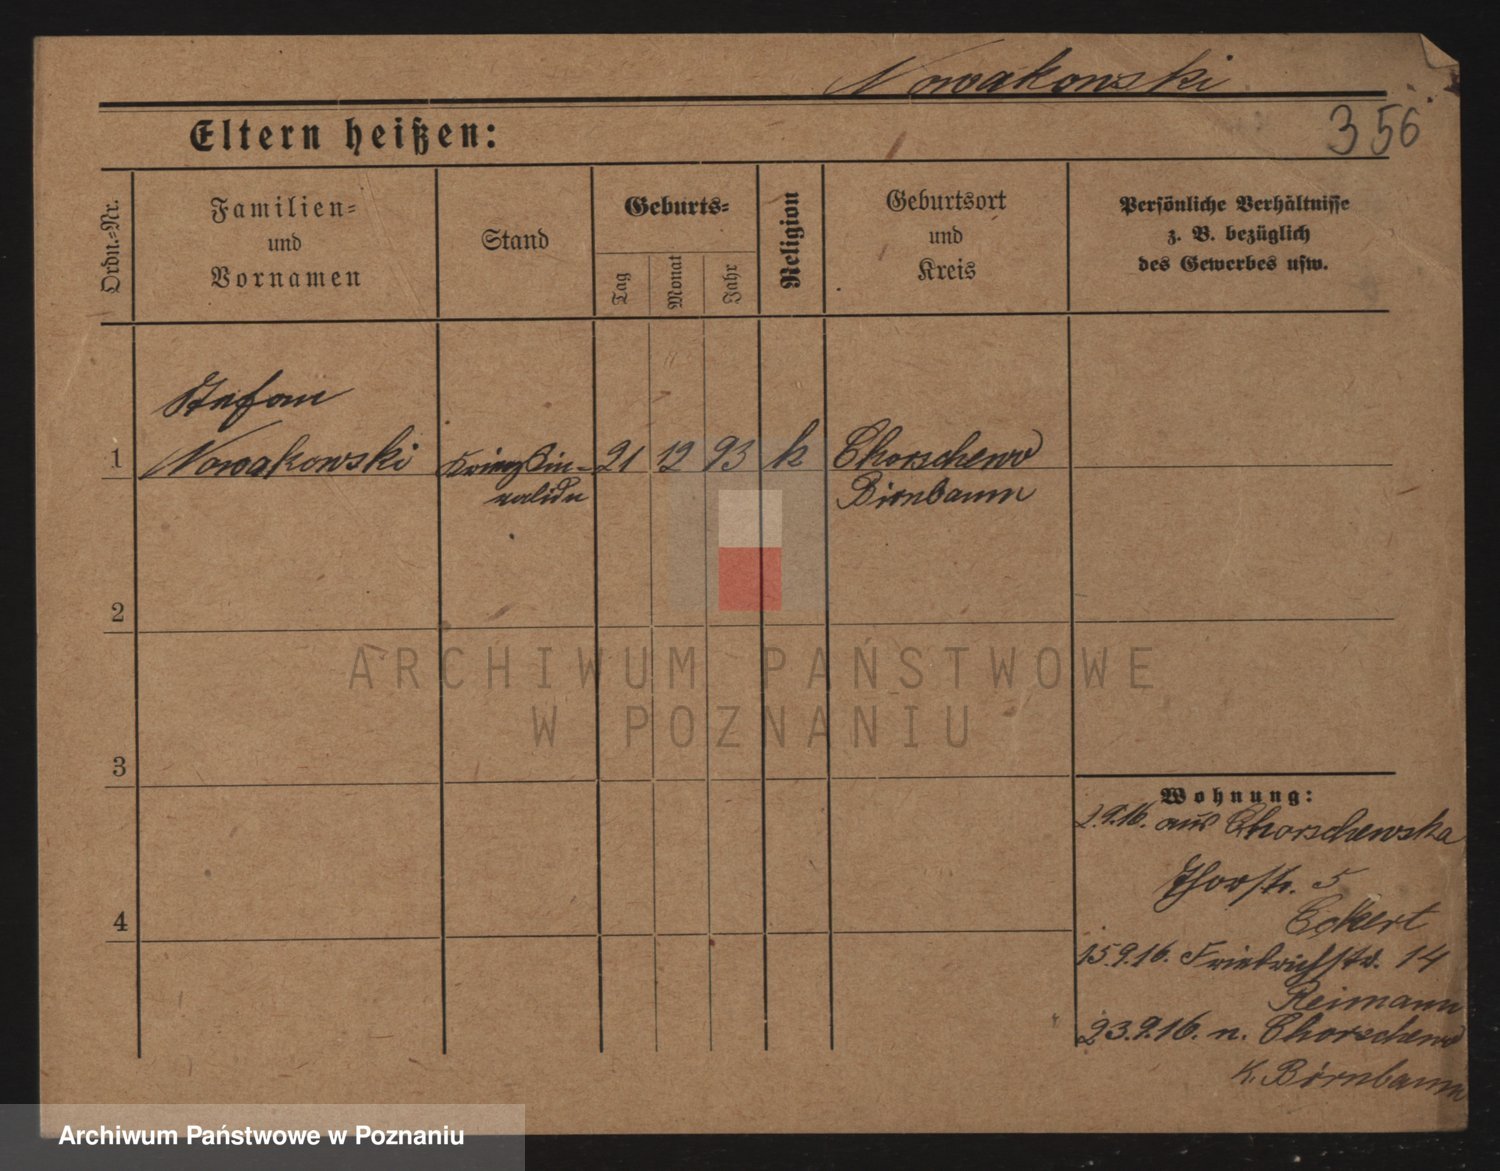 Nowakowski
356
Eltern heißen:
Ordn.-Nr.
Familien-
und
Vornamen
Stand
Geburts-
Tag
Monat
Jahr
Religion
Geburtsort
und
Kreis
Persönliche Verhältnisse
z. B. bezüglich
des Gewerbes usw.
Stefan
1 Nowakowski Kriegsin- 21 12 93 k Chorschewo
validu Birnbaum
2
3
4
Wohnung:
2.9.16. aus Chorschewska
Thorstr. 5
Eckert
15.9.16. Friedrichstr. 14
Reimann
23.9.16. n. Chorschewo
K. Birnbaum
ARCHIWUM PAŃSTWOWE
W POZNANIU
Archiwum Państwowe w Poznaniu